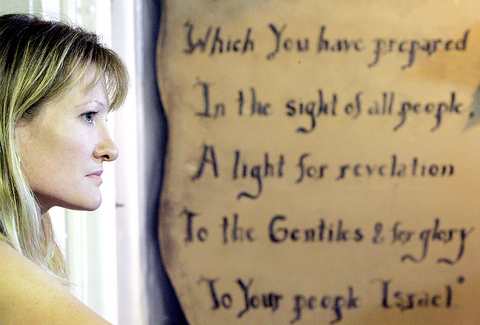 Which You have prepared
In the sight of all people,
A light for revelation
To the Gentiles & for glory
To Your people Israel.